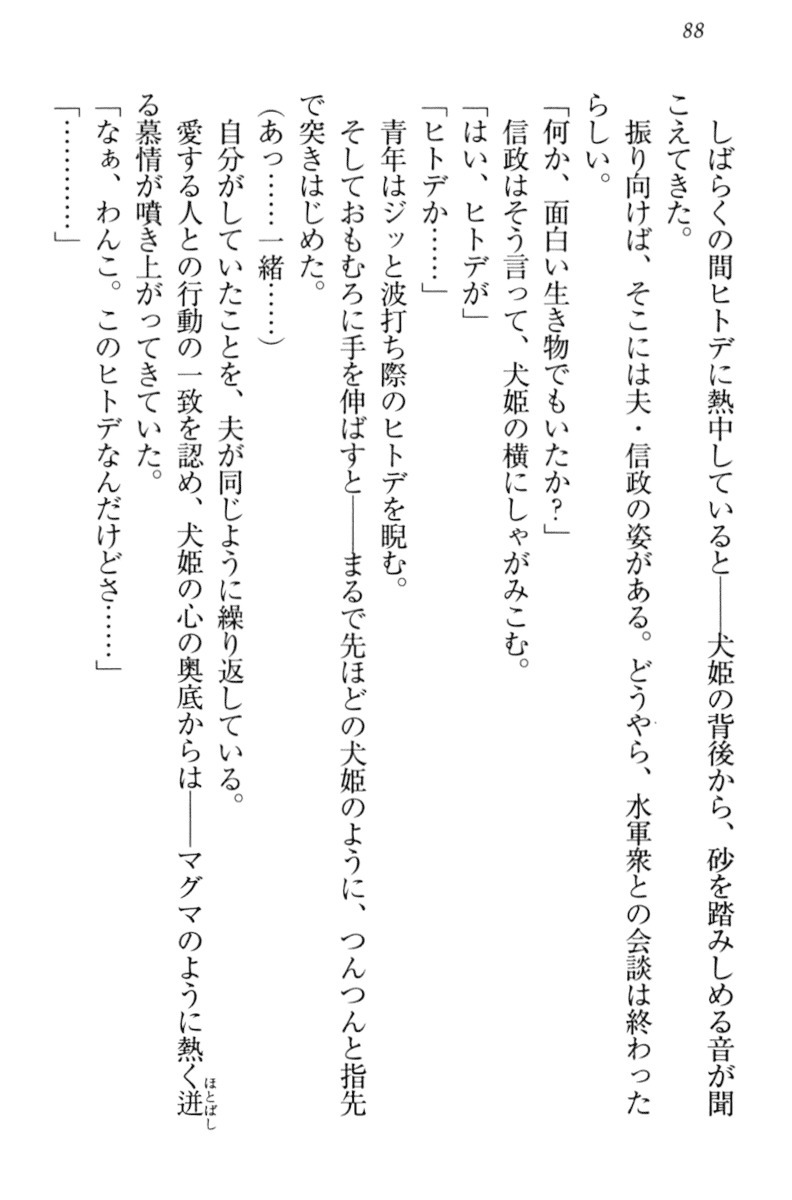 88
しばらくの間ヒトデに熱中していると――犬姫の背後から、砂を踏みしめる音が聞
こえてきた。
振り向けば、そこには夫・信政の姿がある。どうやら、水軍衆との会談は終わった
らしい。
「何か、面白い生き物でもいたか？」
信政はそう言って、犬姫の横にしゃがみこむ。
「はい、ヒトデが」
「ヒトデか……」
青年はジッと波打ち際のヒトデを睨む。
そしておもむろに手を伸ばすと――まるで先ほどの犬姫のように、つんつんと指先
で突きはじめた。
（あっ……一緒……）
自分がしていたことを、夫が同じように繰り返している。
愛する人との行動の一致を認め、犬姫の心の奥底からは――マグマのように熱く迸
ほとばし
る慕情が噴き上がってきていた。
「なぁ、わんこ。このヒトデなんだけどさ……」
「…………」